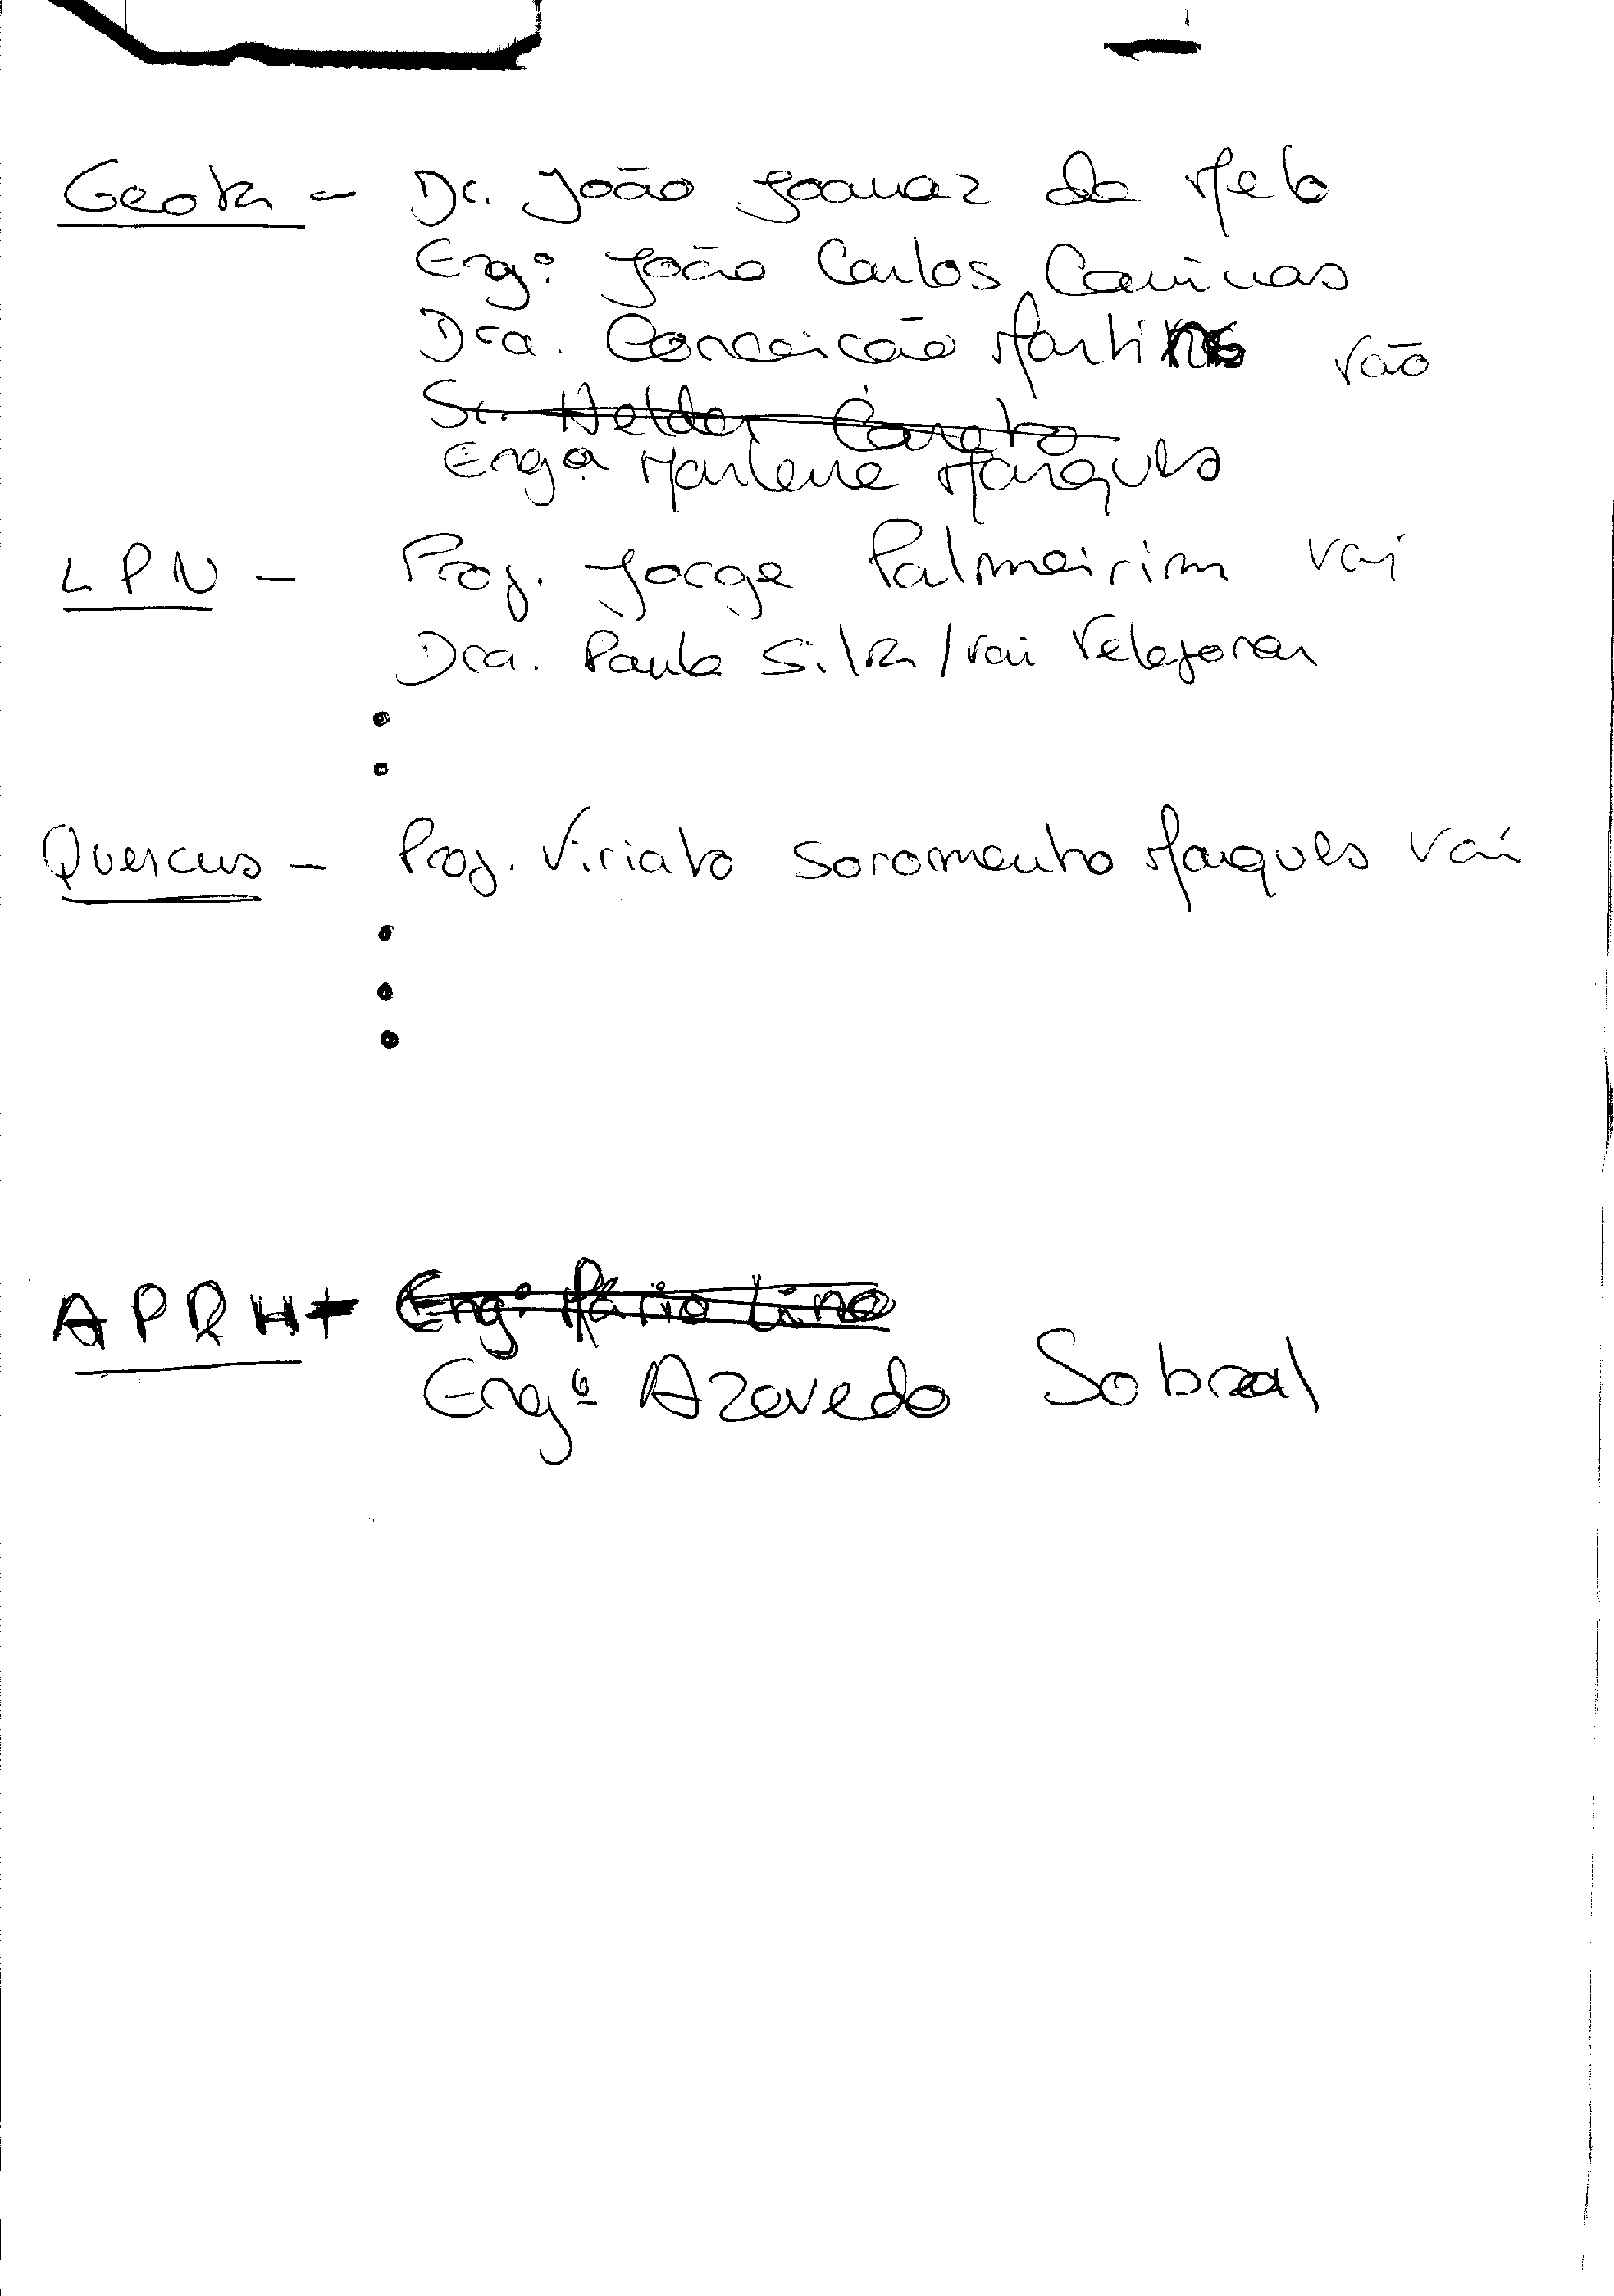 Geota - Dr. João Joanaz de Melo
Eng.º João Carlos Caninas
Dra. Conceição Martins vão
Sr. Helder Careto
Eng.ª Marlene Marques
LPN - Prof. Jorge Palmeirim vai
Dra. Paula Silva / vai telefonar
Quercus - Prof. Viriato Soromenho Marques vai
APRH - Eng.º Mário Lino
Eng.º Azevedo Sobral